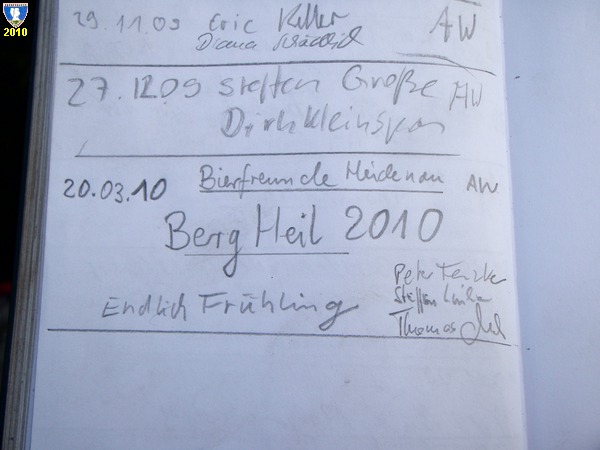 2010
29.11.09 Eric Keller AW
Diana
27.12.09 Steffen Große AW
Dirk Kleinspon
20.03.10 Bierfreunde Heidenau AW
Berg Heil 2010
Endlich Frühling
Peter
Steffen
Thomas